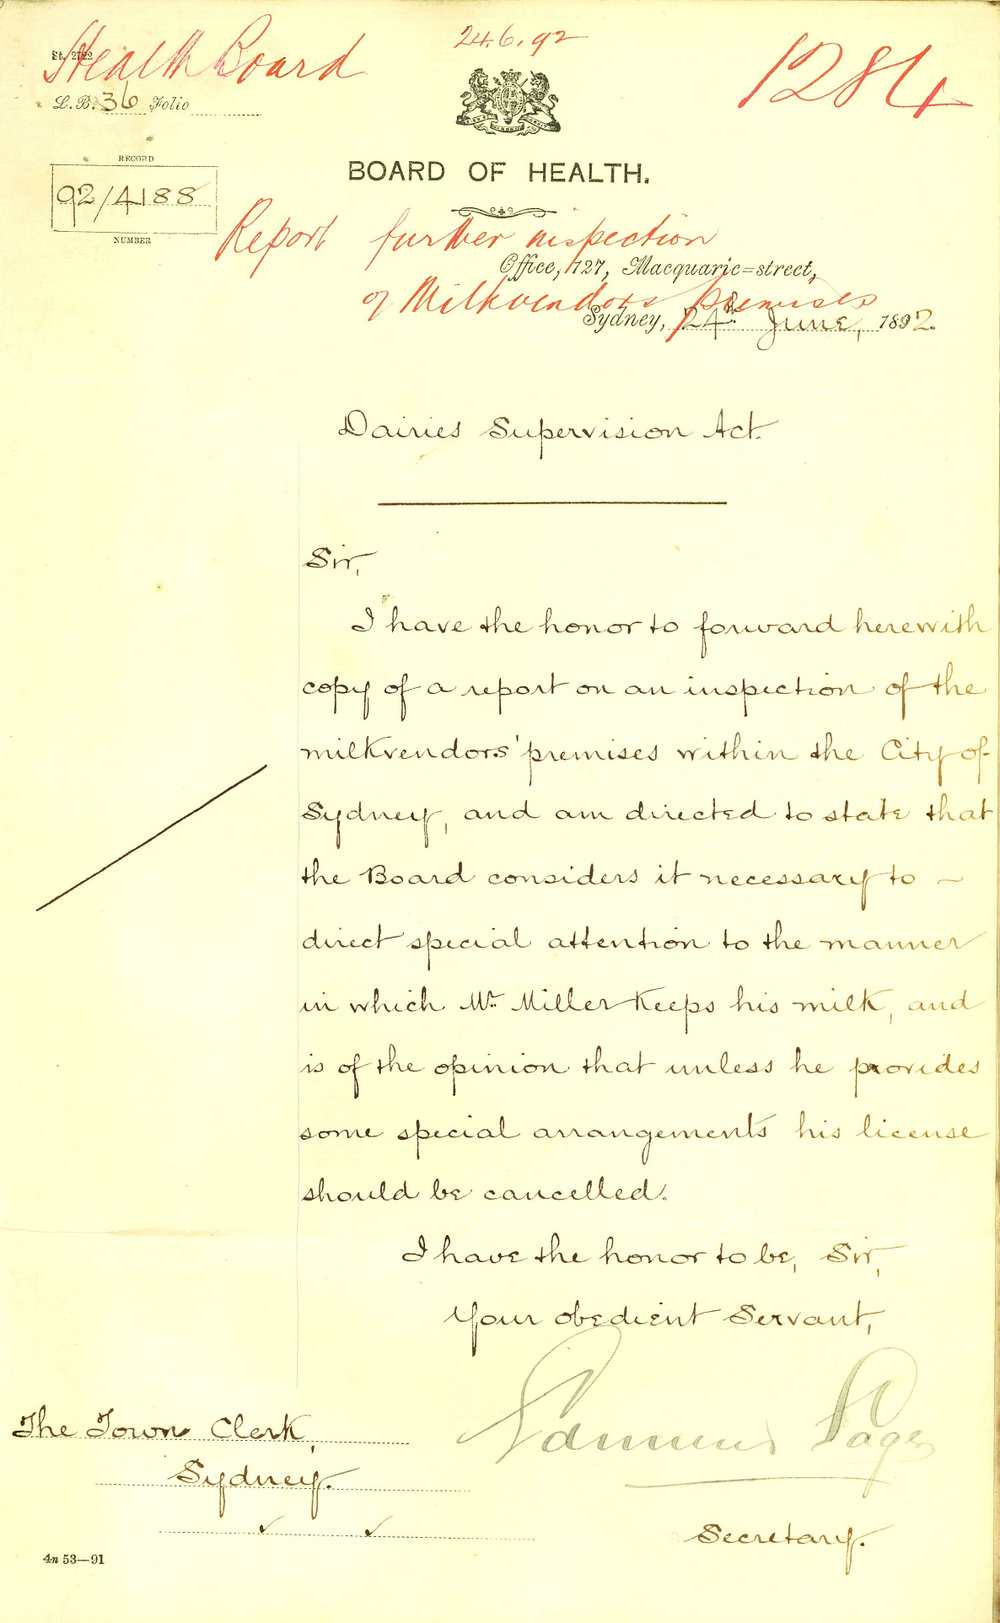 St. 2722
Health Board
24.6.92
1284
L.B. 36 Folio
RECORD
92/4188
NUMBER
BOARD OF HEALTH.
Report further inspection
Office, 127, Macquarie=street,
of Milkvendors premises
Sydney, 24th June, 1892.
Dairies Supervision Act.
Sir,
I have the honor to forward herewith
copy of a report on an inspection of the
milkvendors' premises within the City of
Sydney, and am directed to state that
the Board considers it necessary to –
direct special attention to the manner
in which Mr. Miller keeps his milk, and
is of the opinion that unless he provides
some special arrangements his license
should be cancelled.
I have the honor to be, Sir,
Your obedient Servant,
Edmund Sager
The Town Clerk,
Sydney.
Secretary.
4n 53—91